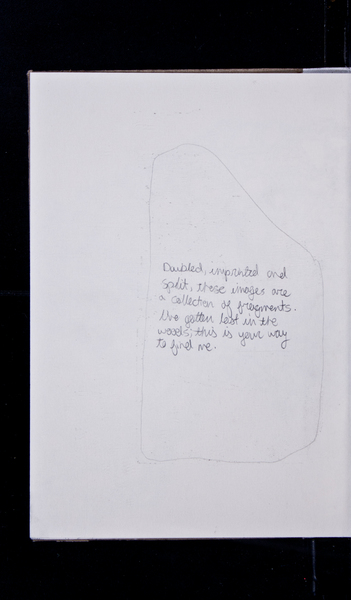 Doubled, imprinted and
split, these images are
a collection of fragments.
I've gotten lost in the
woods; this is your way
to find me.